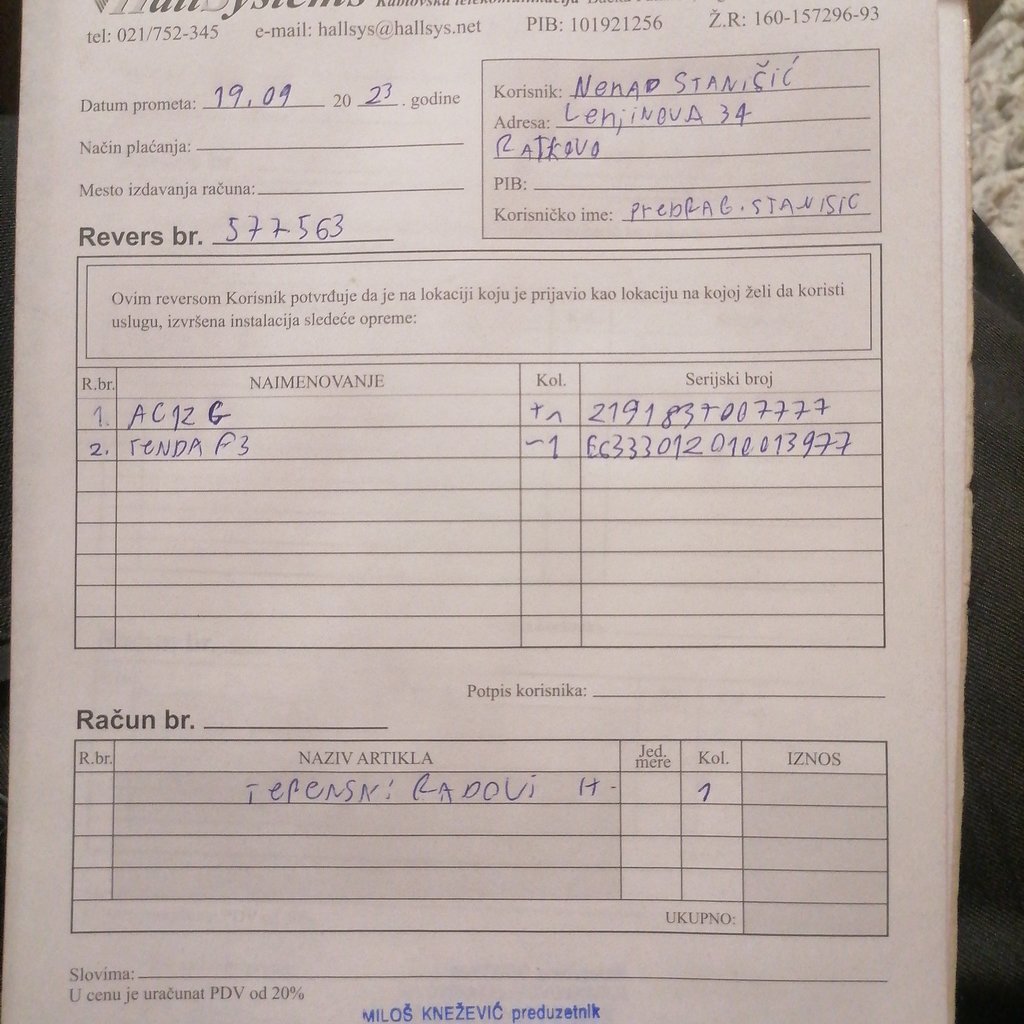 HallSystems Kablovska telekomunikacija
tel: 021/752-345 e-mail: hallsys@hallsys.net PIB: 101921256 Ž.R: 160-157296-93
Datum prometa: 19.09 2023. godine
Način plaćanja:
Mesto izdavanja računa:
Revers br. 577563
Korisnik: Nenad STANIŠIĆ
Adresa: LenjiNOVA 34
RATKOVO
PIB:
Korisničko ime: PreDRAG.STANISIC
Ovim reversom Korisnik potvrđuje da je na lokaciji koju je prijavio kao lokaciju na kojoj želi da koristi
uslugu, izvršena instalacija sledeće opreme:
R.br. NAIMENOVANJE Kol. Serijski broj
1. AC12 G +1 2191837007777
2. TENDA F3 -1 E6333012010013977
Potpis korisnika:
Račun br.
R.br. NAZIV ARTIKLA Jed. mere Kol. IZNOS
TERENSKI RADOVI H- 1
UKUPNO:
Slovima:
U cenu je uračunat PDV od 20%
MILOŠ KNEŽEVIĆ preduzetnik